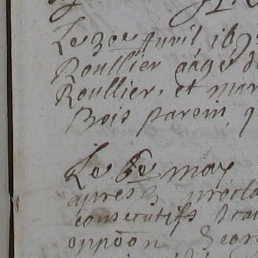 Le 30e Avril 169
Roullier aagé d
Roullier, et mar
Bois parein q
Le 6e may
apres 3 procla
consecutifs
oppõon Geor